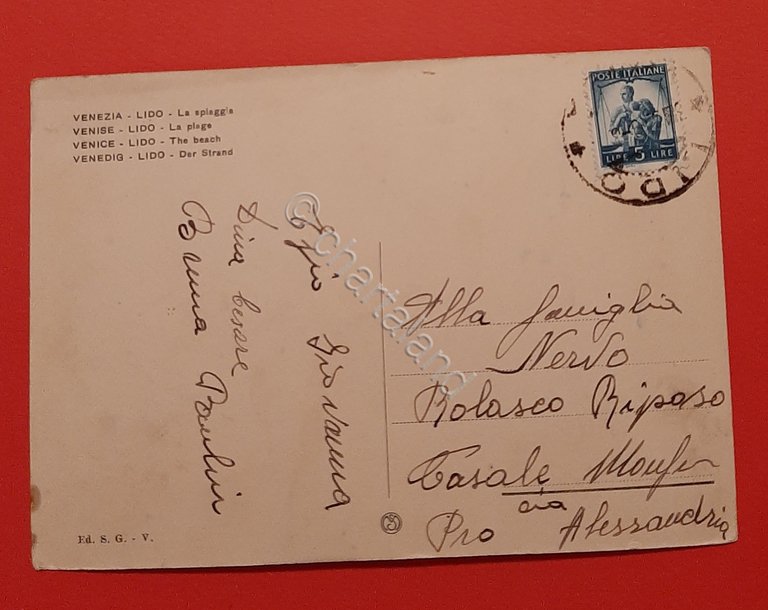 VENEZIA - LIDO - La spiaggia
VENISE - LIDO - La plage
VENICE - LIDO - The beach
VENEDIG - LIDO - Der Strand
POSTE ITALIANE
LIRE 5 LIRE
LIDO
Giovanna
Dina Cesare
Bruna Paulin
© chartaland
Alla famiglia
Nervo
Rolasco Ripaso
Casale Monfer
Pro Alessandria
Ed. S. G. - V.